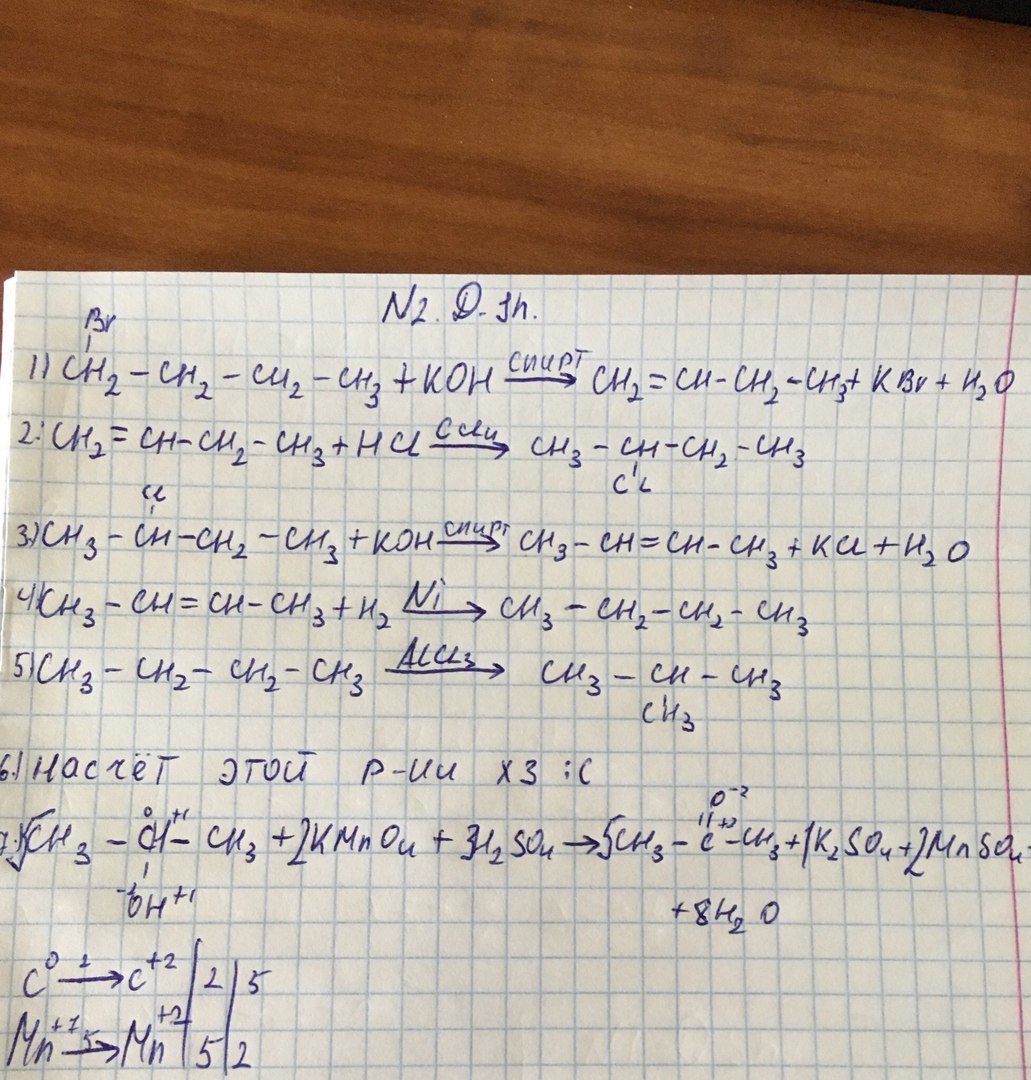 N2. D-зн.
Br
1) CH2 – CH2 – CH2 – CH3 + KOH спирт → CH2 = CH-CH2-CH3 + KBr + H2O
2. CH2 = CH-CH2-CH3 + HCl CCl4 → CH3 – CH-CH2-CH3
Cl
Cl
3) CH3 – CH-CH2-CH3 + KOH спирт → CH3 – CH=CH-CH3 + KCl + H2O
4) CH3 – CH=CH-CH3 + H2 Ni → CH3 – CH2 – CH2 – CH3
5) CH3 – CH2 – CH2 – CH3 AlCl3 → CH3 – CH – CH3
CH3
6.) Насчёт этой р-ии хз :С
O-2
7.) 5CH3 – C0H+1 – CH3 + 2KMnO4 + 3H2SO4 → 5CH3 – C+2 – CH3 + 1K2SO4 + 2MnSO4
-2OH+1
+8H2O
C0 2 → C+2 | 2 | 5
Mn+7 5 → Mn+2 | 5 | 2